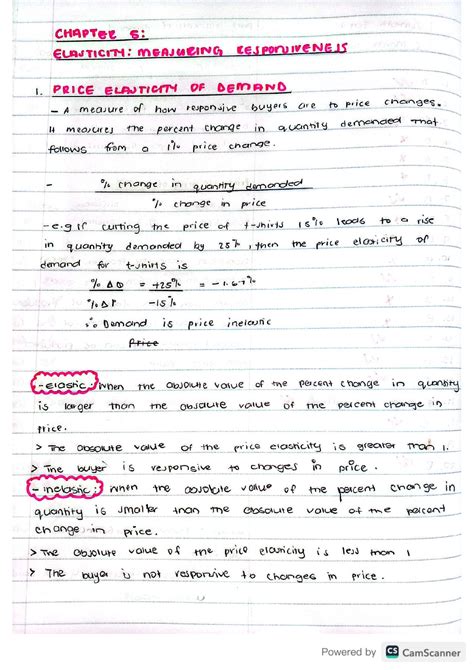 CHAPTER 5:
ELASTICITY: MEASURING RESPONSIVENESS
1. PRICE ELASTICITY OF DEMAND
- A measure of how responsive buyers are to price changes.
It measures the percent change in quantity demanded that
follows from a 1% price change.
- % change in quantity demanded
% change in price
- e.g If curting the price of t-shirts 15% leads to a rise
in quantity demanded by 25%, then the price elasticity of
demand for t-shirts is
% ΔQ = +25% = -1.67%
% ΔP -15%
∴ Demand is price inelastic
Price
- elastic: When the absolute value of the percent change in quantity
is larger than the absolute value of the percent change in
price.
> The absolute value of the price elasticity is greater than 1.
> The buyer is responsive to changes in price.
- inelastic: When the absolute value of the percent change in
quantity is smaller than the absolute value of the percent
change in price.
> The absolute value of the price elasticity is less than 1
> The buyer is not responsive to changes in price.
Powered by CS CamScanner